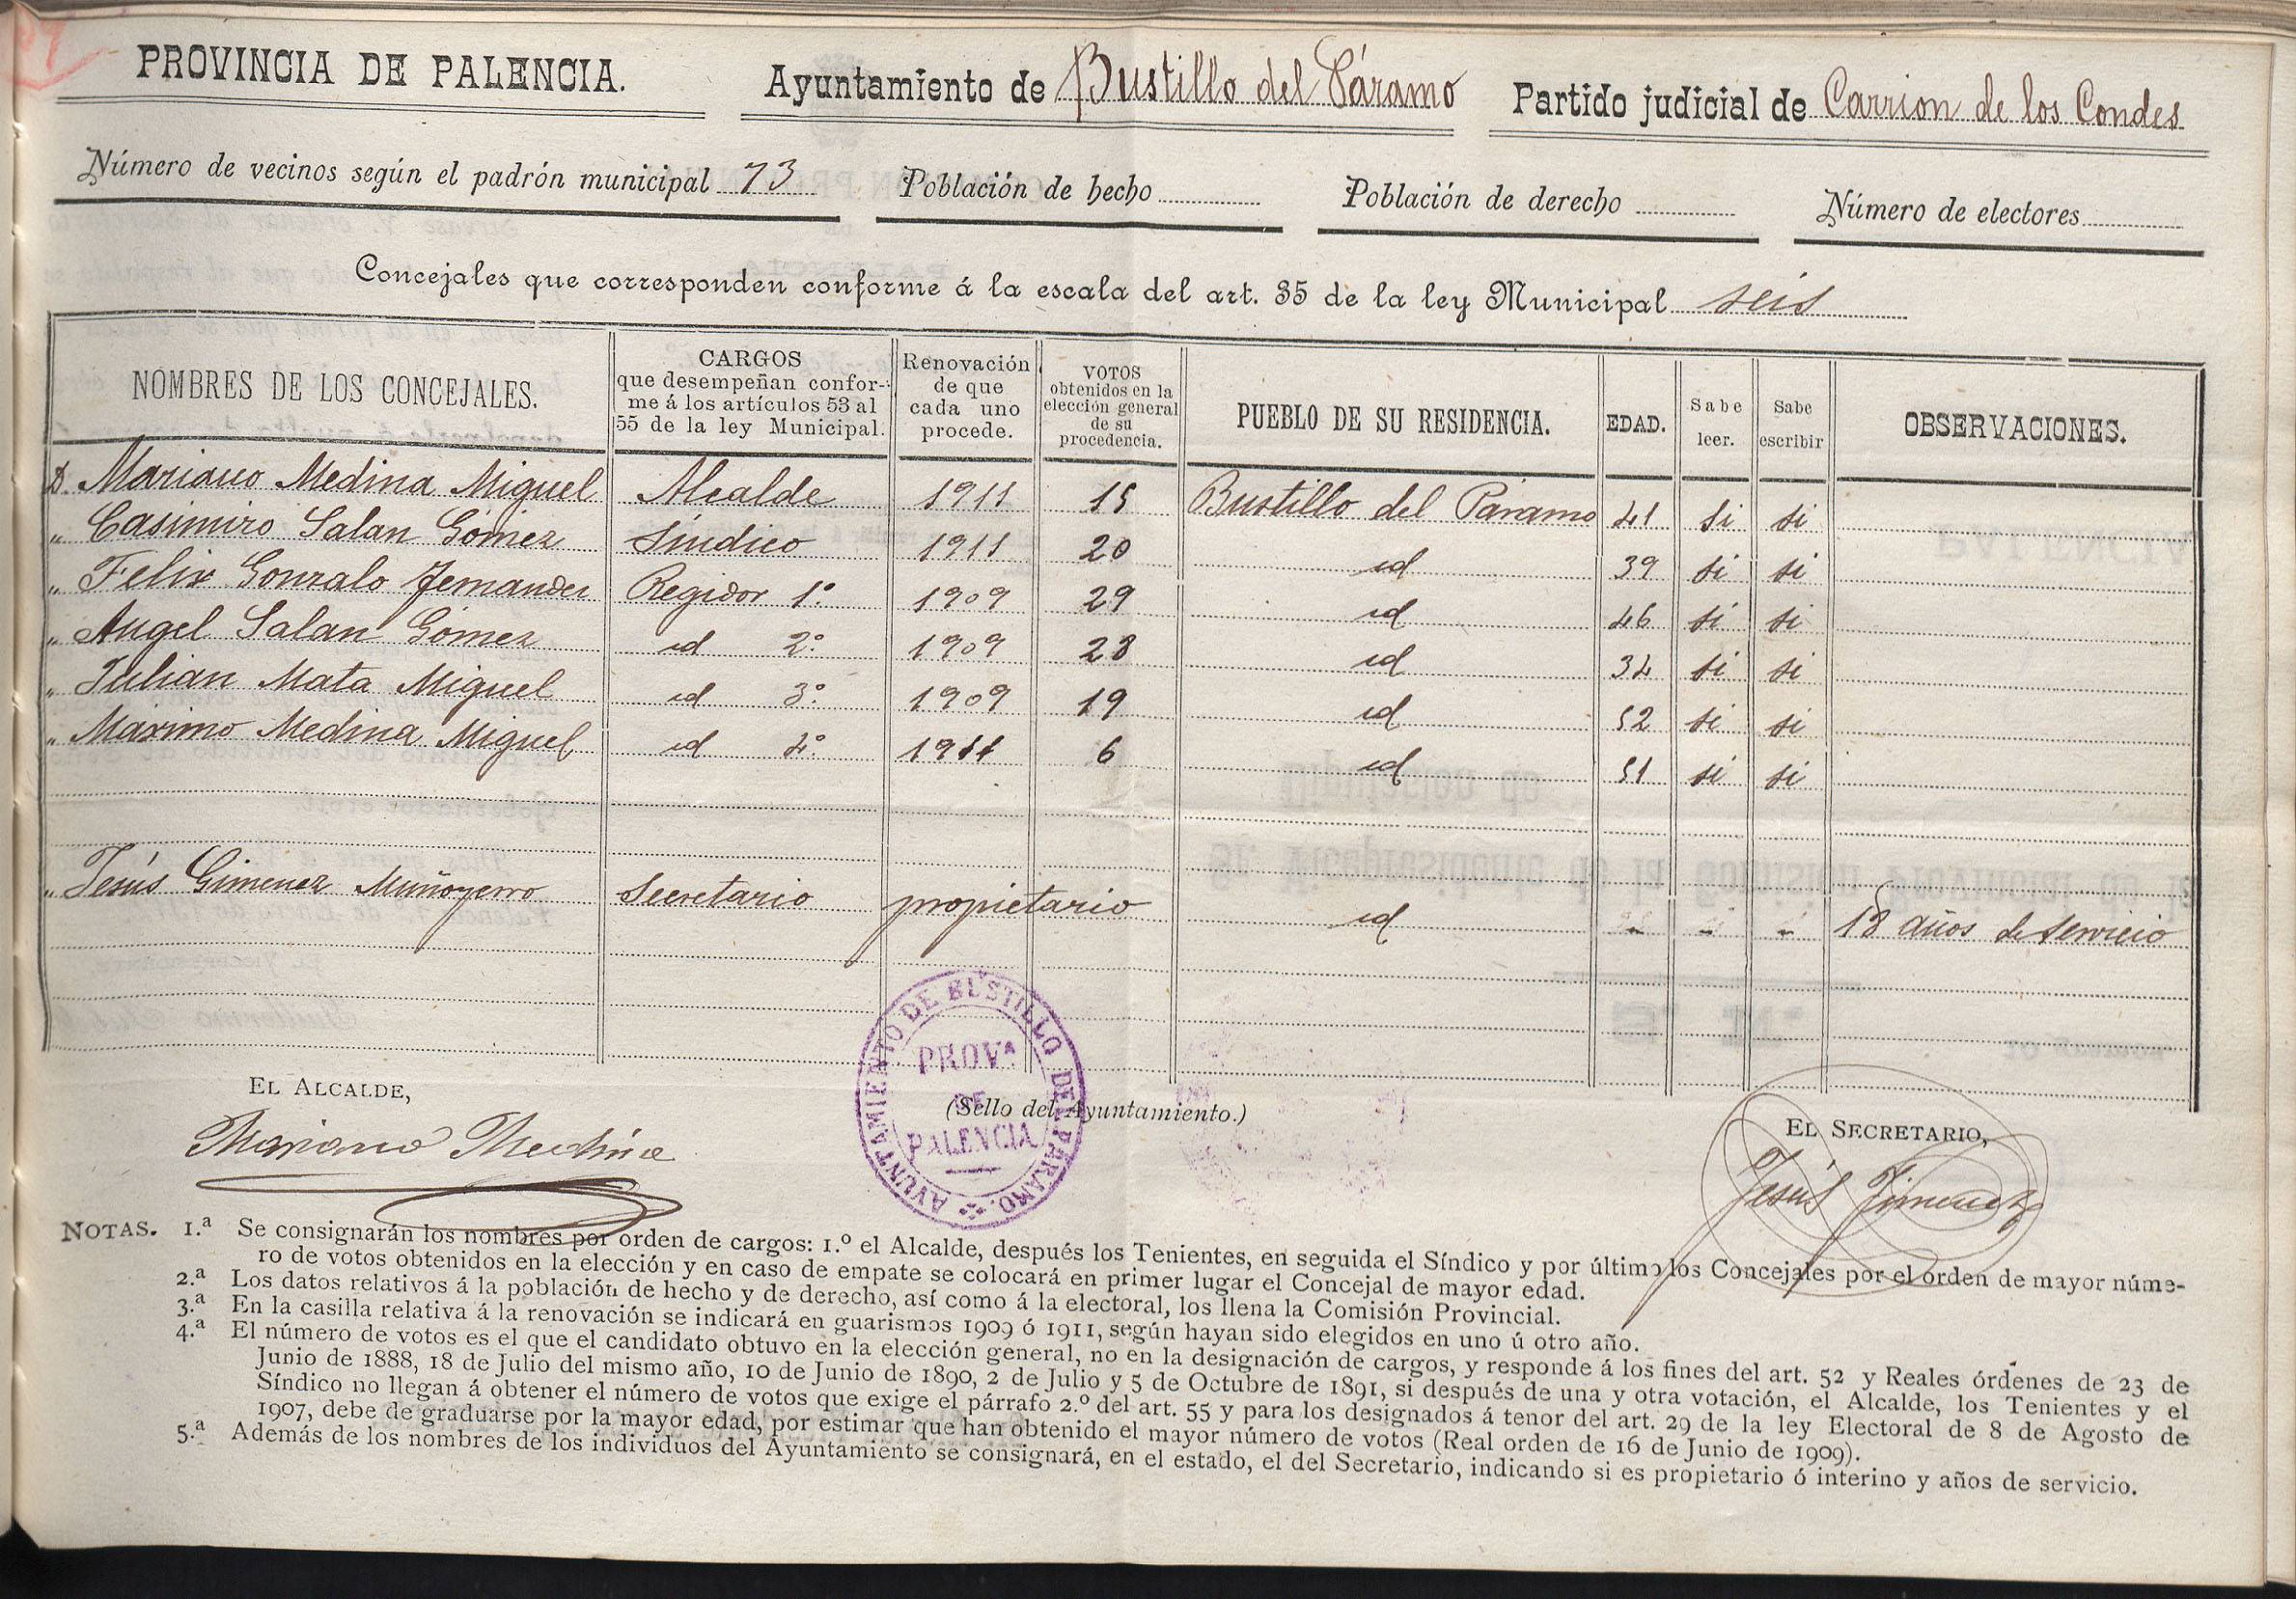 PROVINCIA DE PALENCIA. Ayuntamiento de Bustillo del Páramo Partido judicial de Carrion de los Condes
Número de vecinos según el padrón municipal 73 Población de hecho Población de derecho Número de electores
Concejales que corresponden conforme á la escala del art. 35 de la ley Municipal seis
NOMBRES DE LOS CONCEJALES. CARGOS que desempeñan conforme á los artículos 53 al 55 de la ley Municipal. Renovación de que cada uno procede. VOTOS obtenidos en la elección general de su procedencia. PUEBLO DE SU RESIDENCIA. EDAD. Sabe leer. Sabe escribir OBSERVACIONES.
D. Mariano Medina Miguel Alcalde 1911 15 Bustillo del Páramo 41 si si
" Casimiro Salan Gómez Síndico 1911 20 id 39 si si
" Felix Gonzalo Fernandez Regidor 1.º 1909 29 id 46 si si
" Angel Salan Gómez id 2.º 1909 28 id 34 si si
" Julian Mata Miguel id 3.º 1909 19 id 52 si si
" Maximo Medina Miguel id 4.º 1911 6 id 51 si si
" Jesús Gimenez Muñoyerro Secretario propietario id " " " 18 años de servicio
EL ALCALDE,
Mariano Medina
AYUNTAMIENTO DE BUSTILLO DEL PARAMO.
PROVª
DE
PALENCIA
(Sello del Ayuntamiento.)
EL SECRETARIO,
Jesús Jimenez
NOTAS. 1.ª Se consignarán los nombres por orden de cargos: 1.º el Alcalde, después los Tenientes, en seguida el Síndico y por último los Concejales por el orden de mayor núme-
ro de votos obtenidos en la elección y en caso de empate se colocará en primer lugar el Concejal de mayor edad.
2.ª Los datos relativos á la población de hecho y de derecho, así como á la electoral, los llena la Comisión Provincial.
3.ª En la casilla relativa á la renovación se indicará en guarismos 1909 ó 1911, según hayan sido elegidos en uno ú otro año.
4.ª El número de votos es el que el candidato obtuvo en la elección general, no en la designación de cargos, y responde á los fines del art. 52 y Reales órdenes de 23 de
Junio de 1888, 18 de Julio del mismo año, 10 de Junio de 1890, 2 de Julio y 5 de Octubre de 1891, si después de una y otra votación, el Alcalde, los Tenientes y el
Síndico no llegan á obtener el número de votos que exige el párrafo 2.º del art. 55 y para los designados á tenor del art. 29 de la ley Electoral de 8 de Agosto de
1907, debe de graduarse por la mayor edad, por estimar que han obtenido el mayor número de votos (Real orden de 16 de Junio de 1909).
5.ª Además de los nombres de los individuos del Ayuntamiento se consignará, en el estado, el del Secretario, indicando si es propietario ó interino y años de servicio.